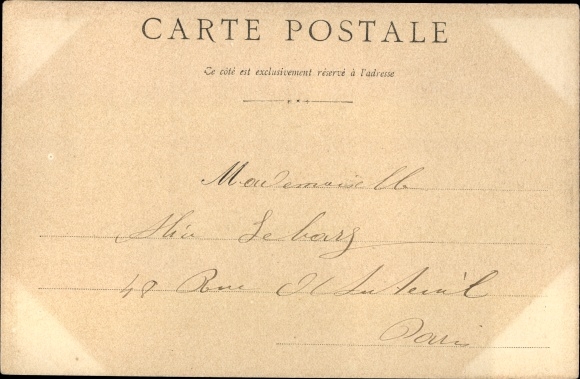 CARTE POSTALE
Ce côté est exclusivement réservé à l'adresse
Mademoiselle
Lebarz
48 Rue d'Auteuil
Paris